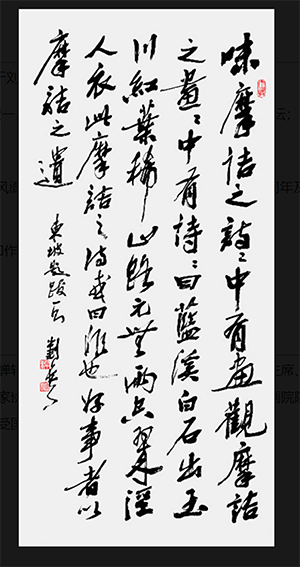 味摩詰之詩〻中有畫觀摩詰
之畫〻中有詩〻曰藍溪白石出玉
川紅葉稀山路元無雨空翠溼
人衣此摩詰之詩或曰非也好事者以
摩詰之遺
東坡題跋一 劉